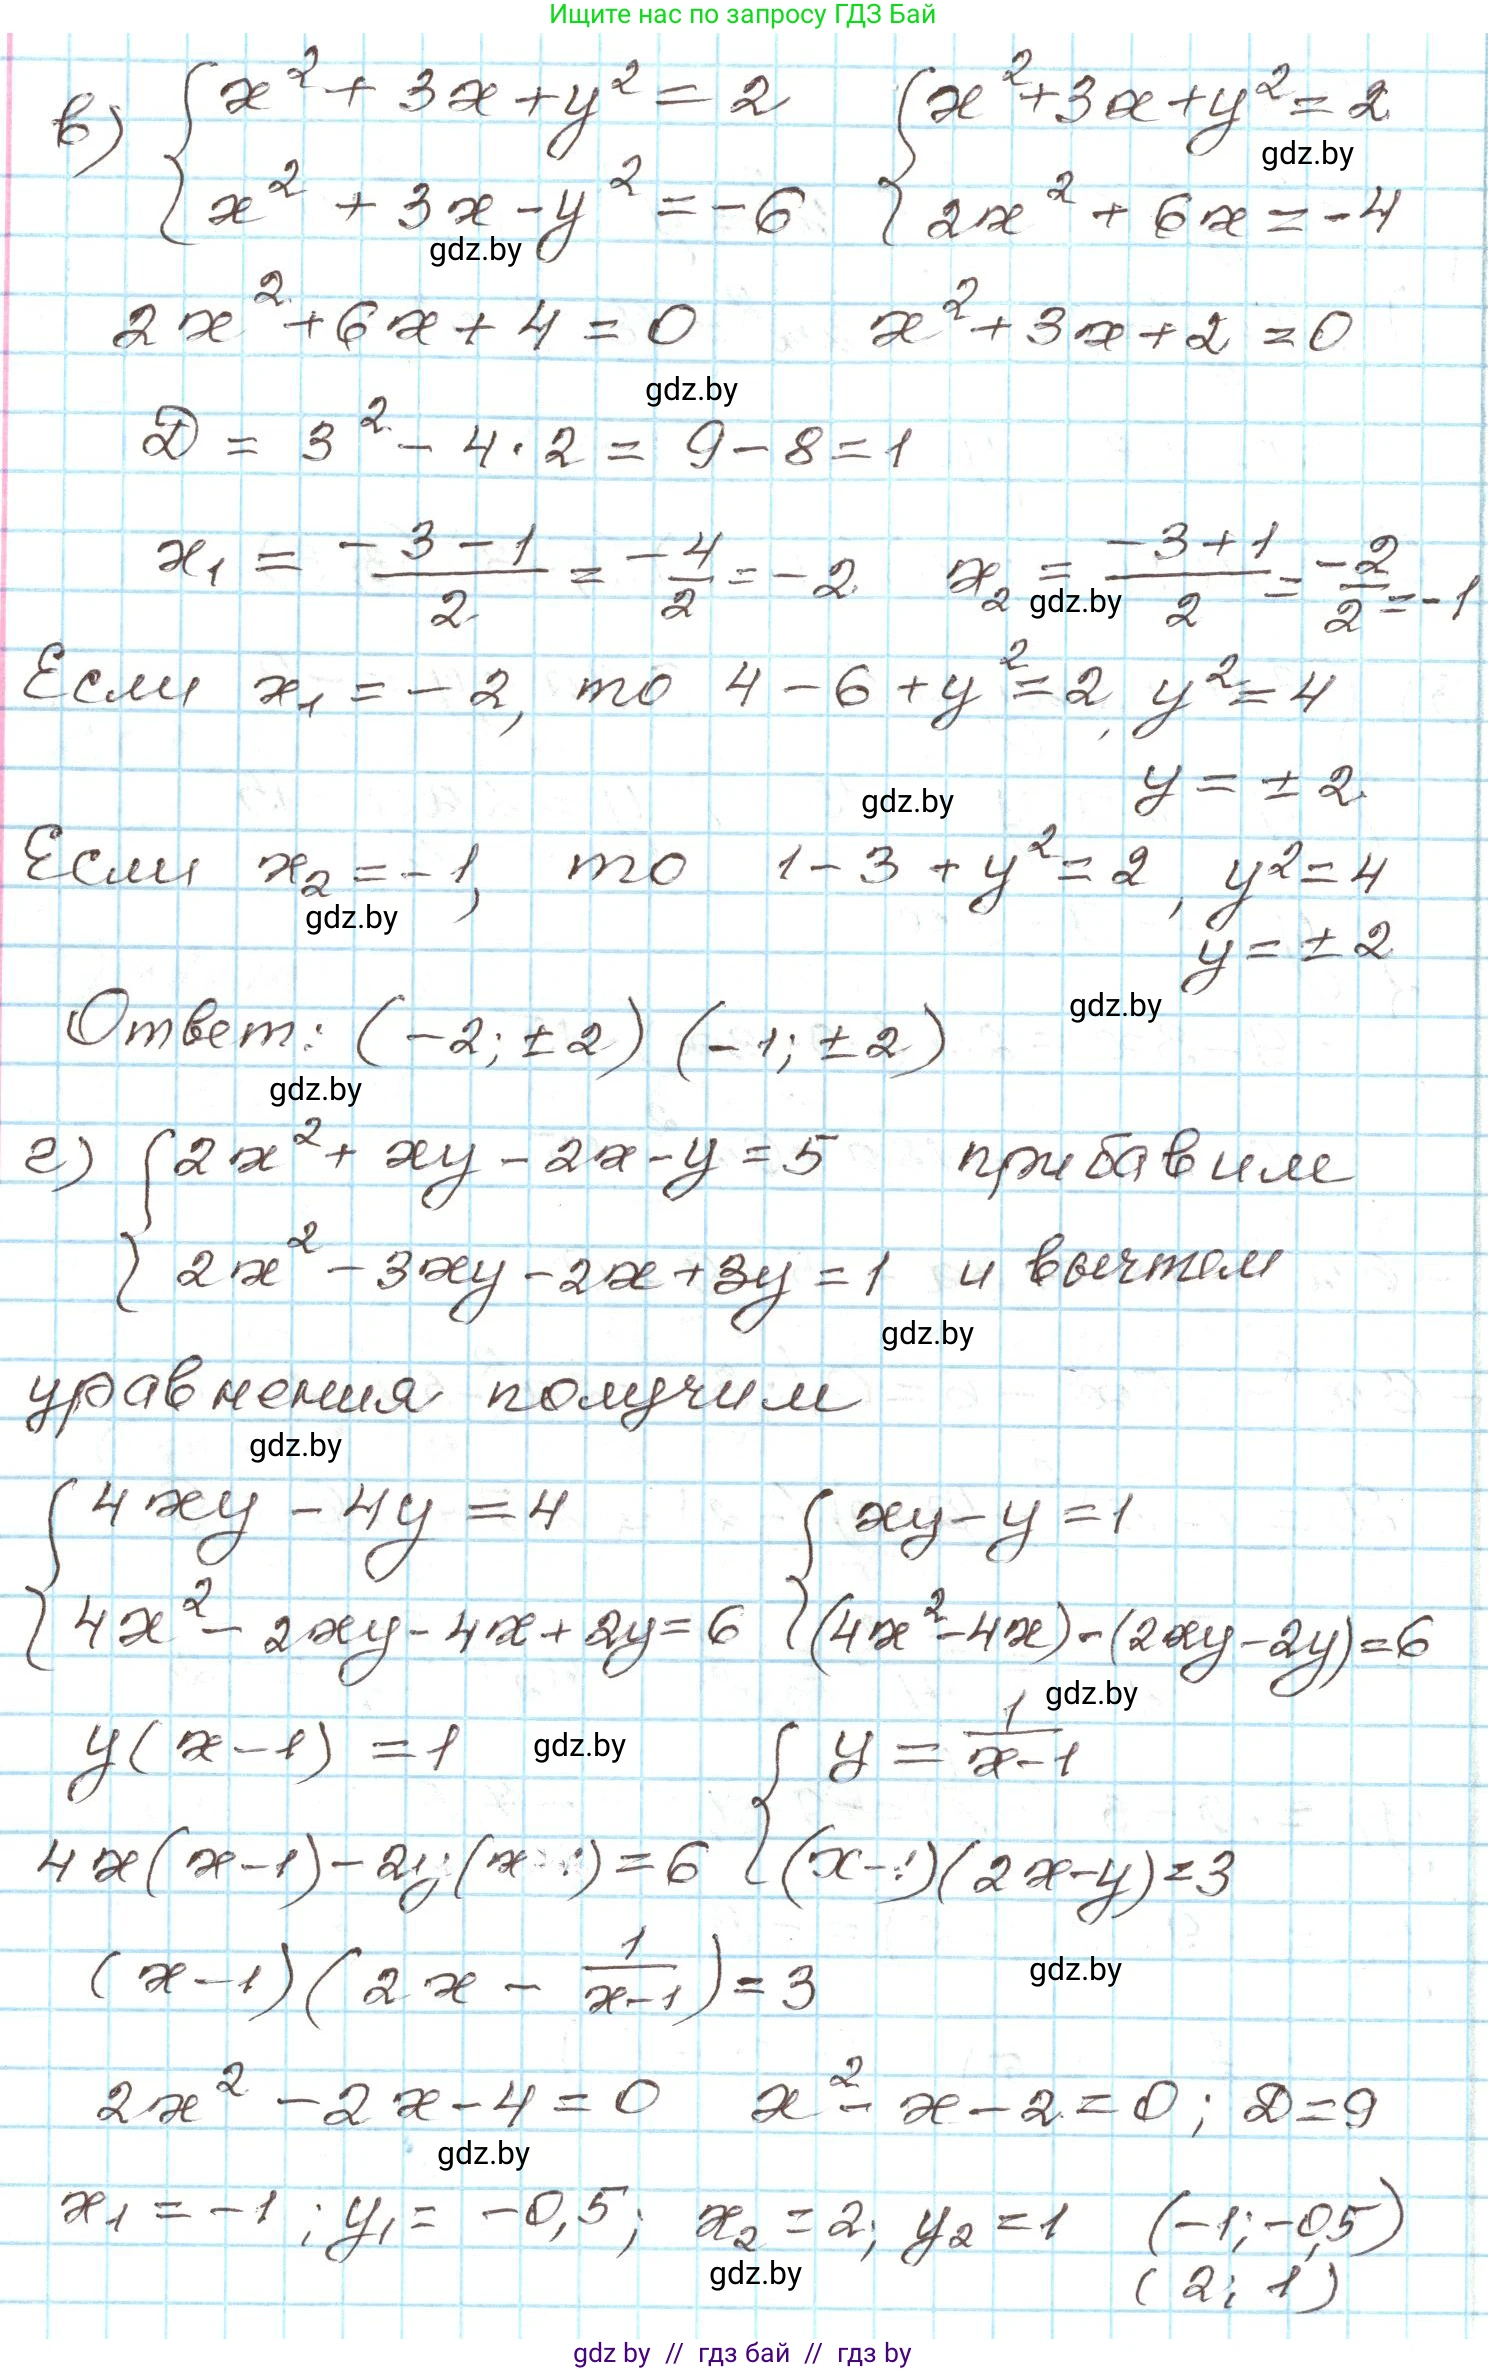 Ищите нас по запросу ГДЗ Бай
в) { x² + 3x + y² = 2    { x² + 3x + y² = 2
gdz.by
{ x² + 3x - y² = -6    { 2x² + 6x = -4
gdz.by
2x² + 6x + 4 = 0    x² + 3x + 2 = 0
gdz.by
D = 3² - 4 · 2 = 9 - 8 = 1
x₁ = (-3 - 1)/2 = -4/2 = -2    x₂ = (-3 + 1)/2 = -2/2 = -1
gdz.by
Если x₁ = -2, то 4 - 6 + y² = 2, y² = 4
y = ± 2
gdz.by
Если x₂ = -1, то 1 - 3 + y² = 2, y² = 4
gdz.by
y = ± 2
Ответ: (-2; ±2) (-1; ±2)
gdz.by
gdz.by
г) { 2x² + xy - 2x - y = 5    прибавим
{ 2x² - 3xy - 2x + 3y = 1    и вычтем
gdz.by
уравнения получим
gdz.by
{ 4xy - 4y = 4    { xy - y = 1
{ 4x² - 2xy - 4x + 2y = 6    { (4x² - 4x) - (2xy - 2y) = 6
gdz.by
y(x - 1) = 1    { y = 1/(x - 1)
gdz.by
4x(x - 1) - 2y(x - 1) = 6    { (x - 1)(2x - y) = 3
(x - 1)(2x - 1/(x - 1)) = 3
gdz.by
2x² - 2x - 4 = 0    x² - x - 2 = 0; D = 9
gdz.by
x₁ = -1; y₁ = -0,5; x₂ = 2; y₂ = 1    (-1; -0,5)
gdz.by
(2; 1)
gdz by // гдз бай // гдз by